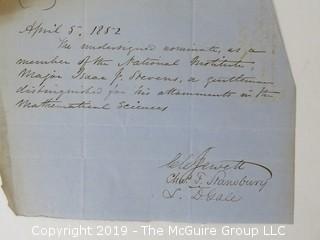 April 5, 1852
The undersigned nominate, as a
member of the National Institute
Major Isaac I. Stevens, a gentleman
distinguished for his attainments in the
Mathematical Sciences
C C Jewett
Chas. F. Stansbury
L. D Gale
Copyright 2019 - The McGuire Group, LLC